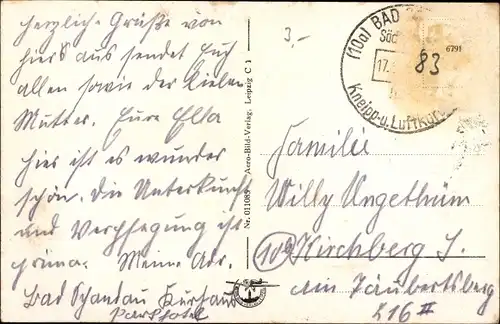 herzliche Grüße von
hier aus sendet Euch
allen sowie der lieben
Mutter. Eure Ella
Hier ist es wunder
schön. Die Unterkunft
und Verpflegung ist
prima. Meine Adr.
Bad Schandau Kurhaus
Parkhotel
3,-
Nr. 011085 Aero-Bild-Verlag, Leipzig C 1
(10a) BAD
Säc
17.
Kneipp- u. Luftkur
6791
83
Familie
Willy Ungethüm
10b Kirchberg S.
Am Täubertsberg
216 II